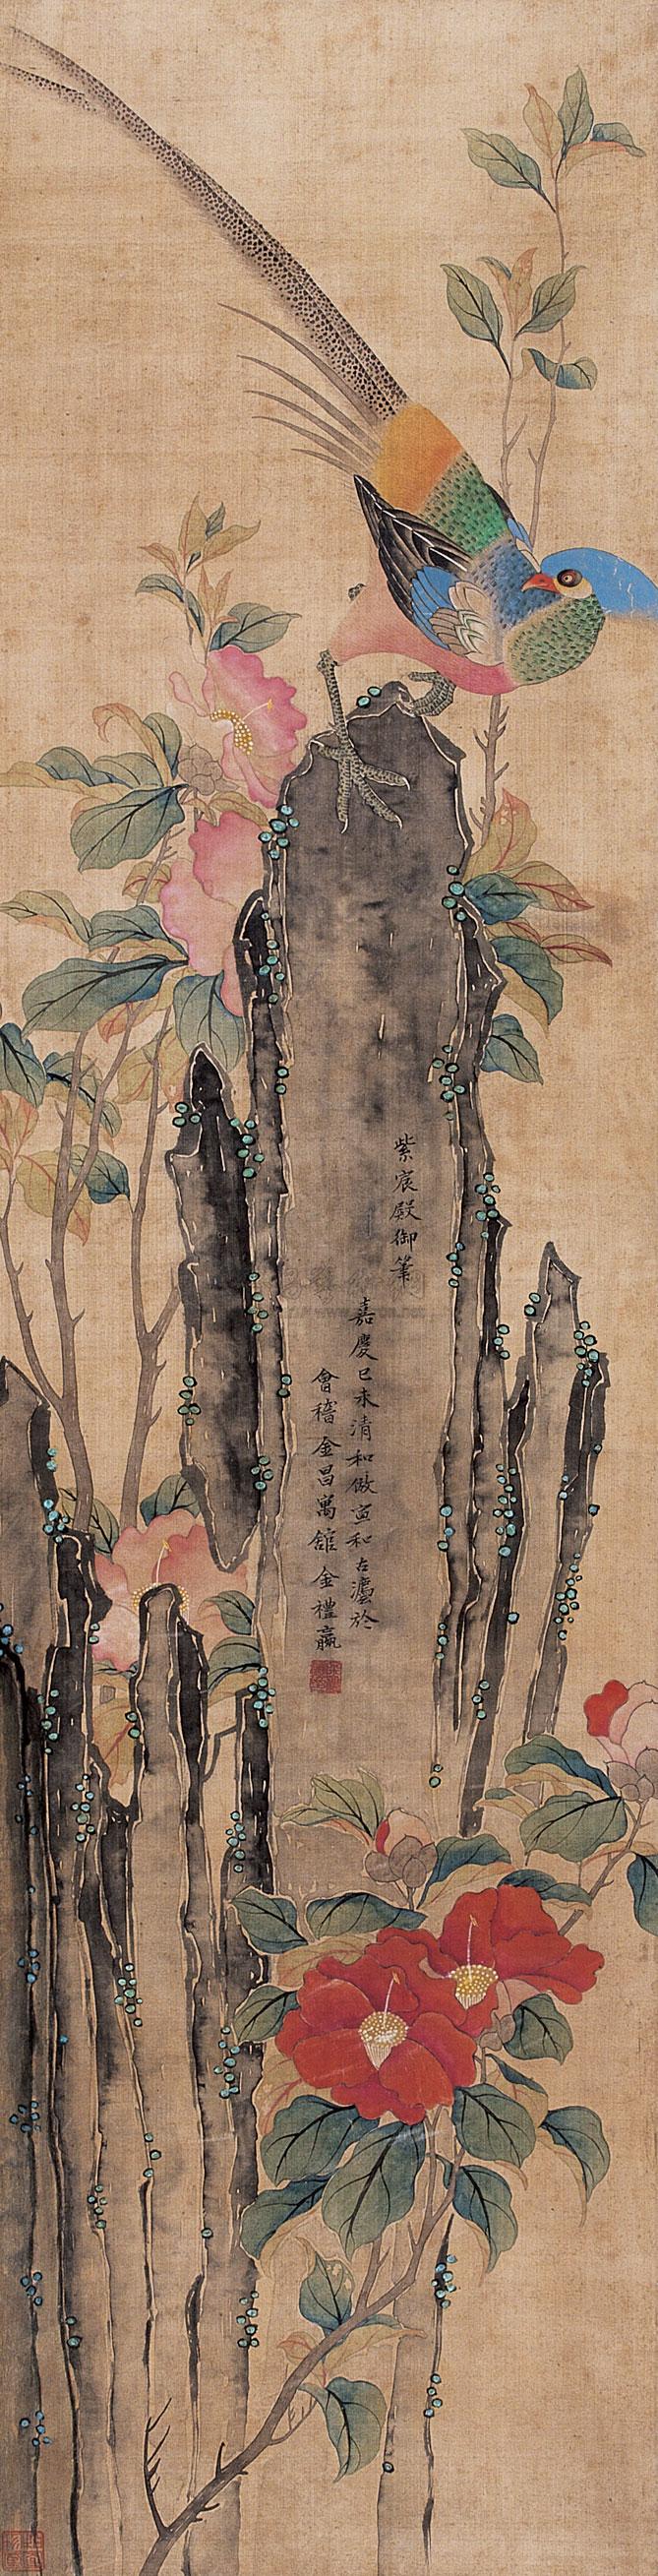 紫宸殿御筆
嘉慶己未清和倣宣和古灋於
會稽金昌寓舘金禮嬴